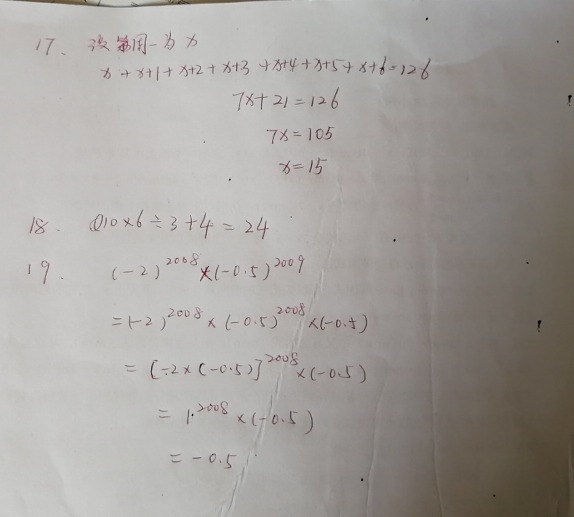 17、设周一为x
x+x+1+x+2+x+3+x+4+x+5+x+6=126
7x+21=126
7x=105
x=15
18. ①10×6÷3+4=24
19. (-2)^2008×(-0.5)^2009
=(-2)^2008×(-0.5)^2008×(-0.5)
=[-2×(-0.5)]^2008×(-0.5)
=1^2008×(-0.5)
=-0.5